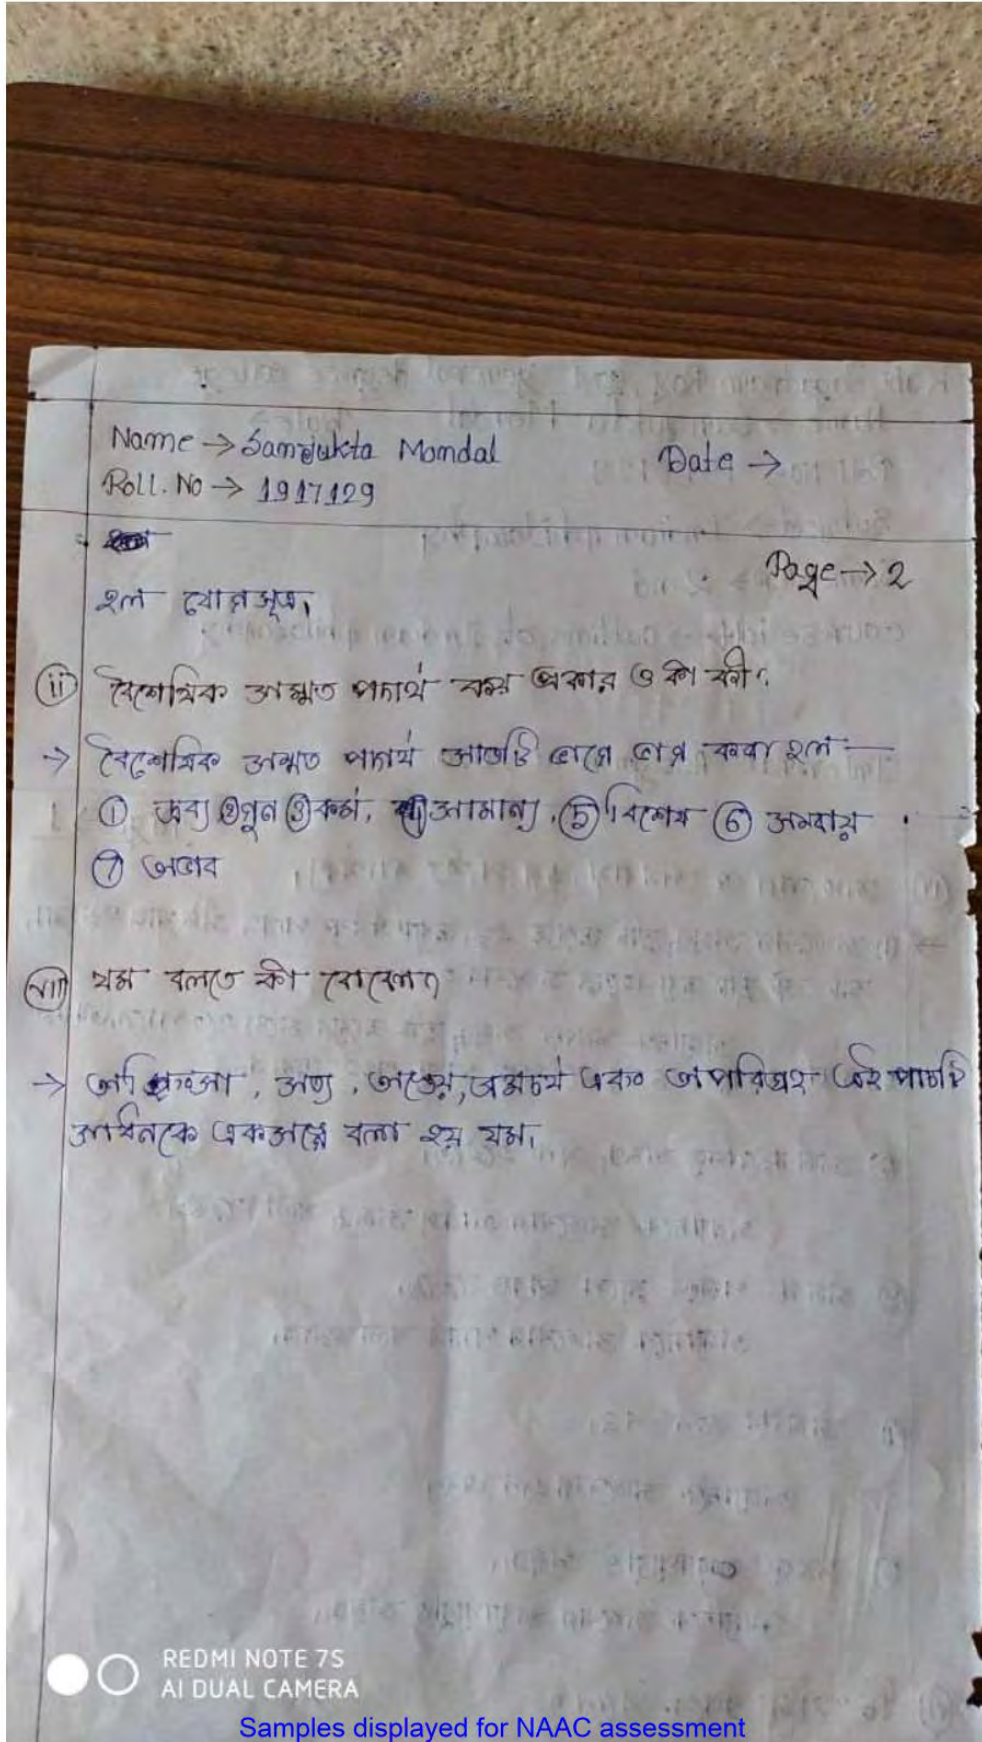 Name → Samjukta Mondal Date →
Roll. No → 1917129
Page → 2
হল যোগসূত্র,
(ii) বৈশেষিক সম্মত পদার্থ কয় প্রকার ও কী কী?
→ বৈশেষিক সম্মত পদার্থ সাতটি ভাগে ভাগ করা হল —
① দ্রব্য ② গুন ③ কর্ম, ④ সামান্য, ⑤ বিশেষ ⑥ সমবায়
⑦ অভাব
(viii) যম বলতে কী বোঝো?
→ অহিংসা, সত্য, অস্তেয়, ব্রহ্মচর্য এবং অপরিগ্রহ এই পাচটি
সাধনকে একসঙ্গে বলা হয় যম,
REDMI NOTE 7S
AI DUAL CAMERA
Samples displayed for NAAC assessment